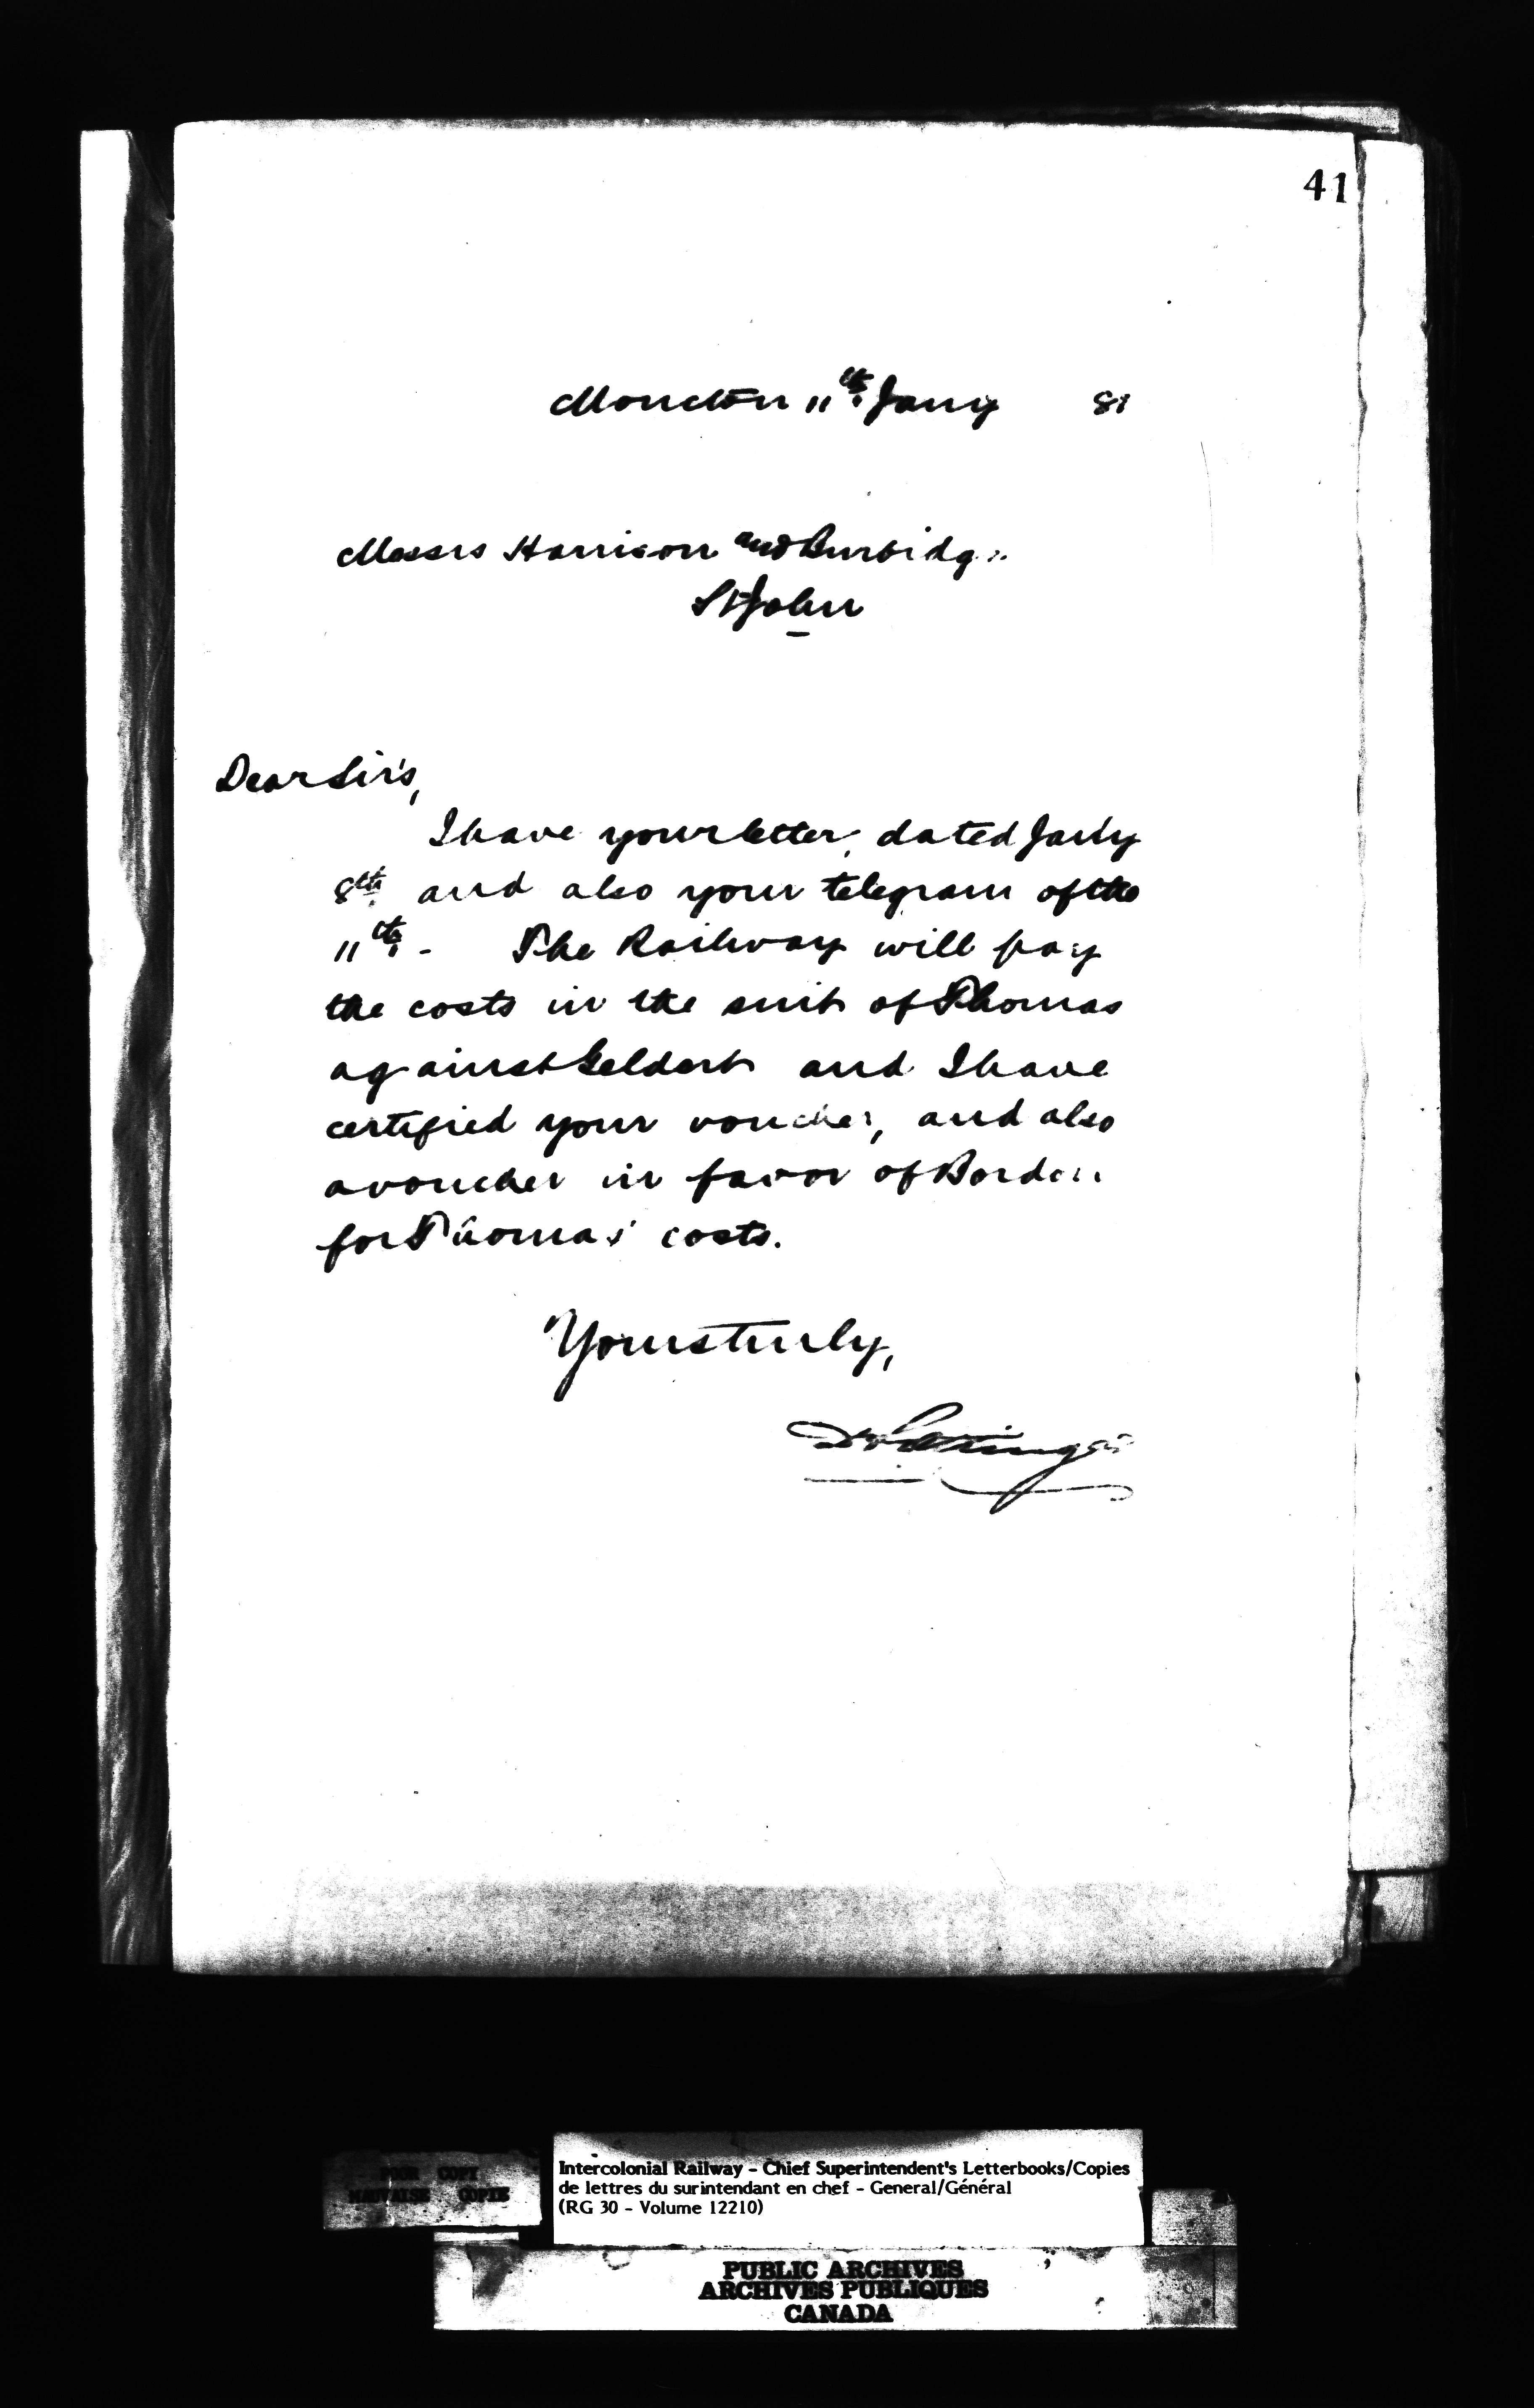 41
Moncton 11th Jany 81
Messrs Harrison and Burbidge
St John
Dear Sirs,
I have your letter, dated Jany
8th and also your telegram of the
11th - The Railway will pay
the costs in the suit of Thomas
against Geldert and I have
certified your voucher, and also
a voucher in favor of Borden
for Thomas' costs.
Yours truly,
D Pottinger
POOR COPY
MAUVAISE COPIE
Intercolonial Railway - Chief Superintendent's Letterbooks/Copies
de lettres du surintendant en chef - General/Général
(RG 30 - Volume 12210)
PUBLIC ARCHIVES
ARCHIVES PUBLIQUES
CANADA